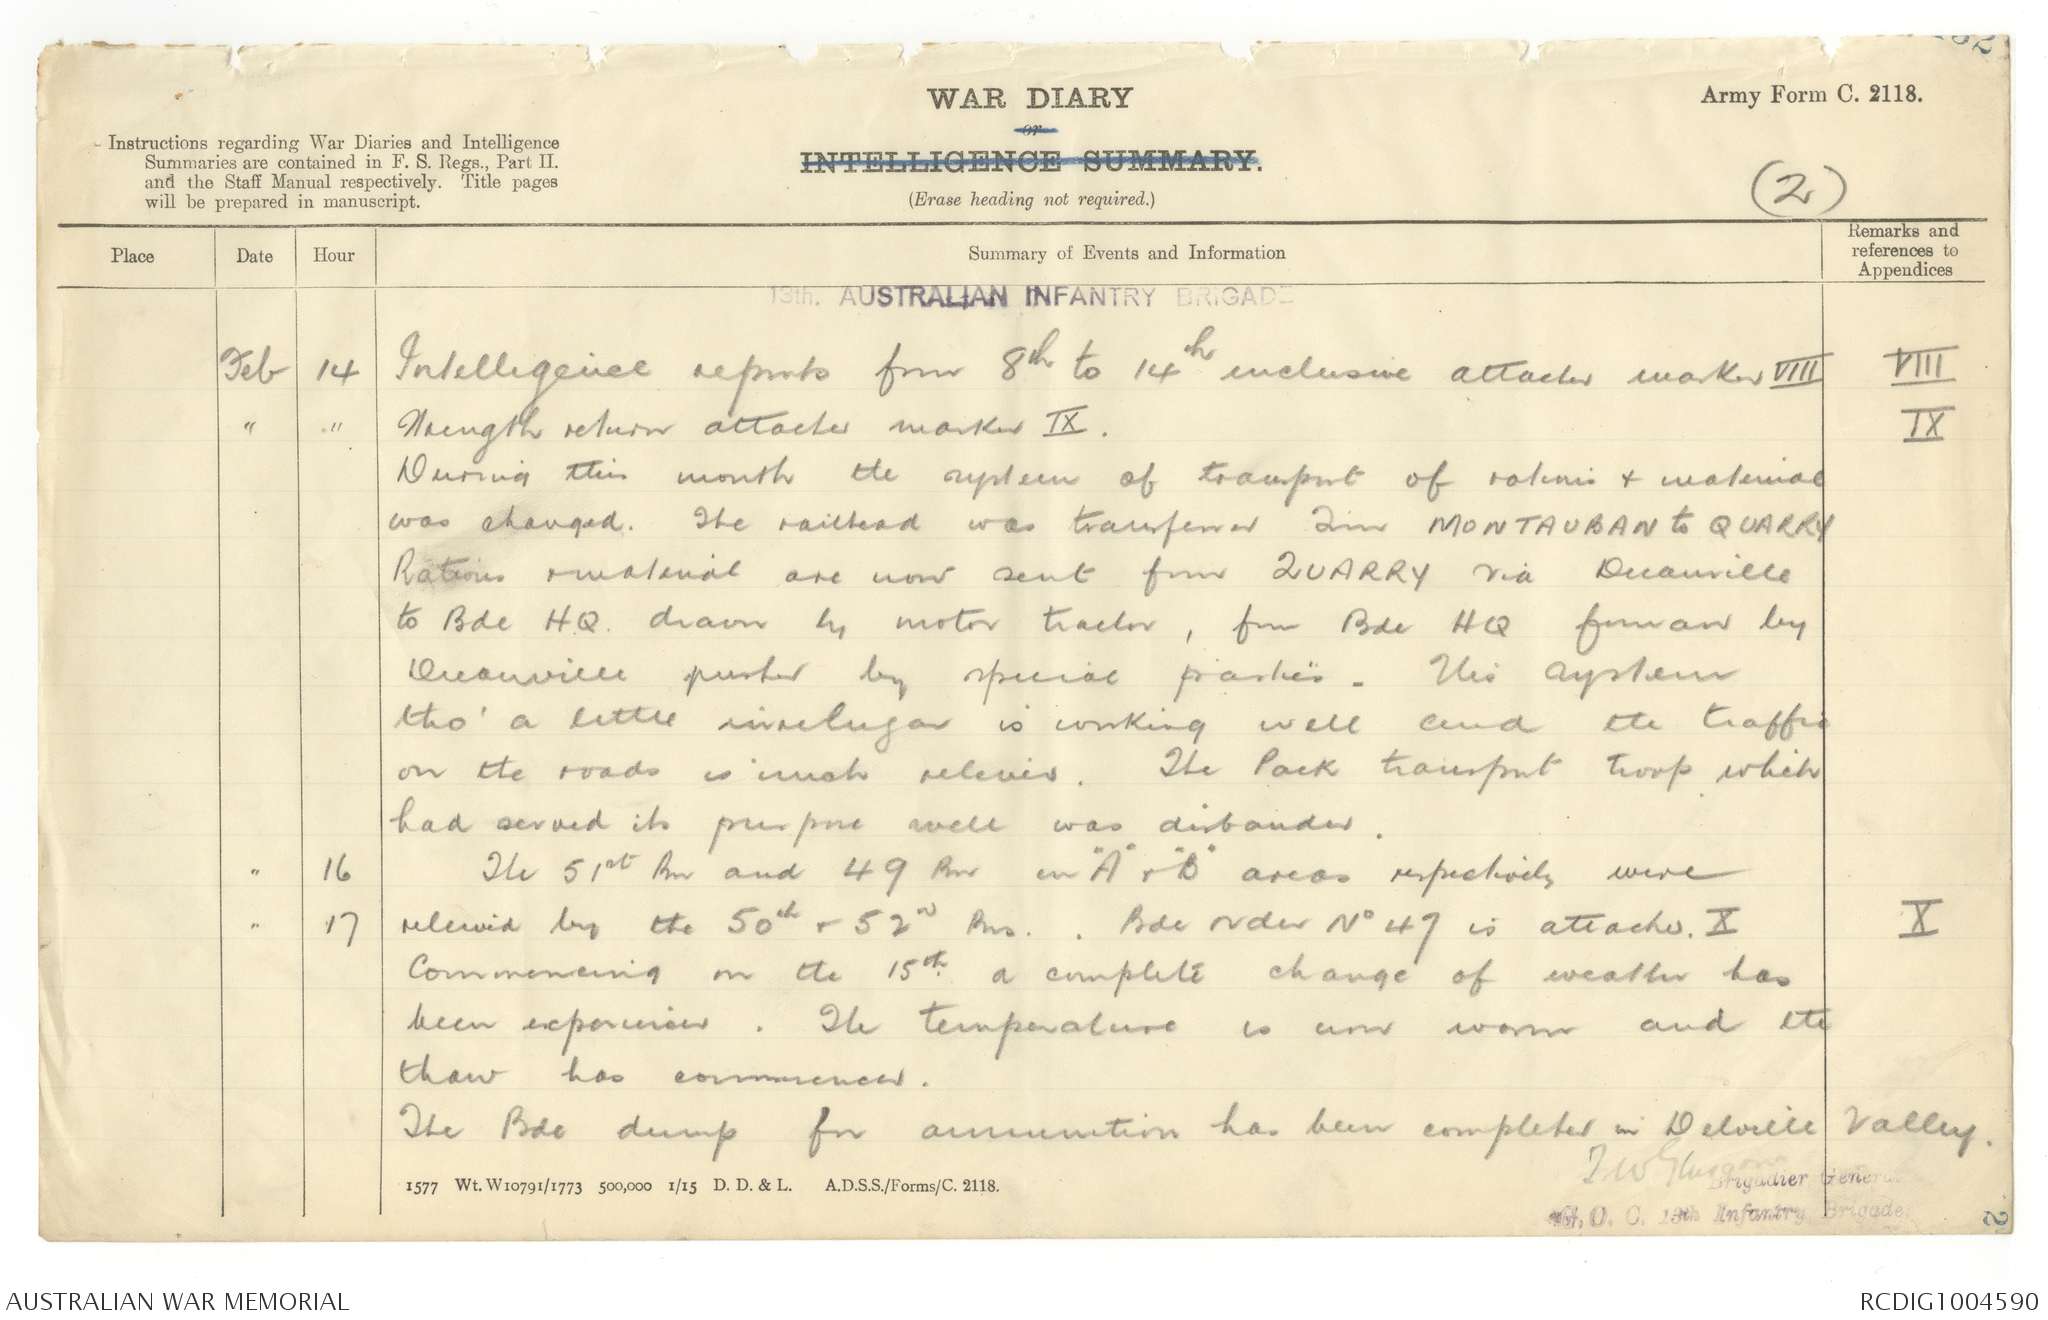 WAR DIARY
or
INTELLIGENCE SUMMARY.
(Erase heading not required.)
Army Form C. 2118.
Instructions regarding War Diaries and Intelligence
Summaries are contained in F. S. Regs., Part II.
and the Staff Manual respectively. Title pages
will be prepared in manuscript.
(2)
Place Date Hour Summary of Events and Information Remarks and references to Appendices
13th. AUSTRALIAN INFANTRY BRIGADE
Feb 14 Intelligence reports from 8th to 14th inclusive attached marked VIII VIII
" " Strength return attached marked IX. IX
During this month the system of transport of rations + material
was changed. The railhead was transferred from MONTAUBAN to QUARRY
Rations + material are now sent from QUARRY via Decauville
to Bde H.Q. drawn by motor tractor, from Bde HQ forward by
Decauville pushed by special parties. This system
tho' a little irregular is working well and the traffic
on the roads is much relieved. The Pack transport troop which
had served its purpose well was disbanded.
" 16 The 51st Bn and 49 Bn in "A" + "B" areas respectively were
" 17 relieved by the 50th + 52nd Bns. Bde order No 47 is attached. X X
Commencing on the 15th a complete change of weather has
been experienced. The temperature is now warm and the
thaw has commenced.
The Bde dump for ammunition has been completed in Delville Valley.
Brigadier General
G. O. C. 13th Infantry Brigade.
1577 Wt. W10791/1773 500,000 1/15 D. D. & L. A.D.S.S./Forms/C. 2118.
2
AUSTRALIAN WAR MEMORIAL
RCDIG1004590